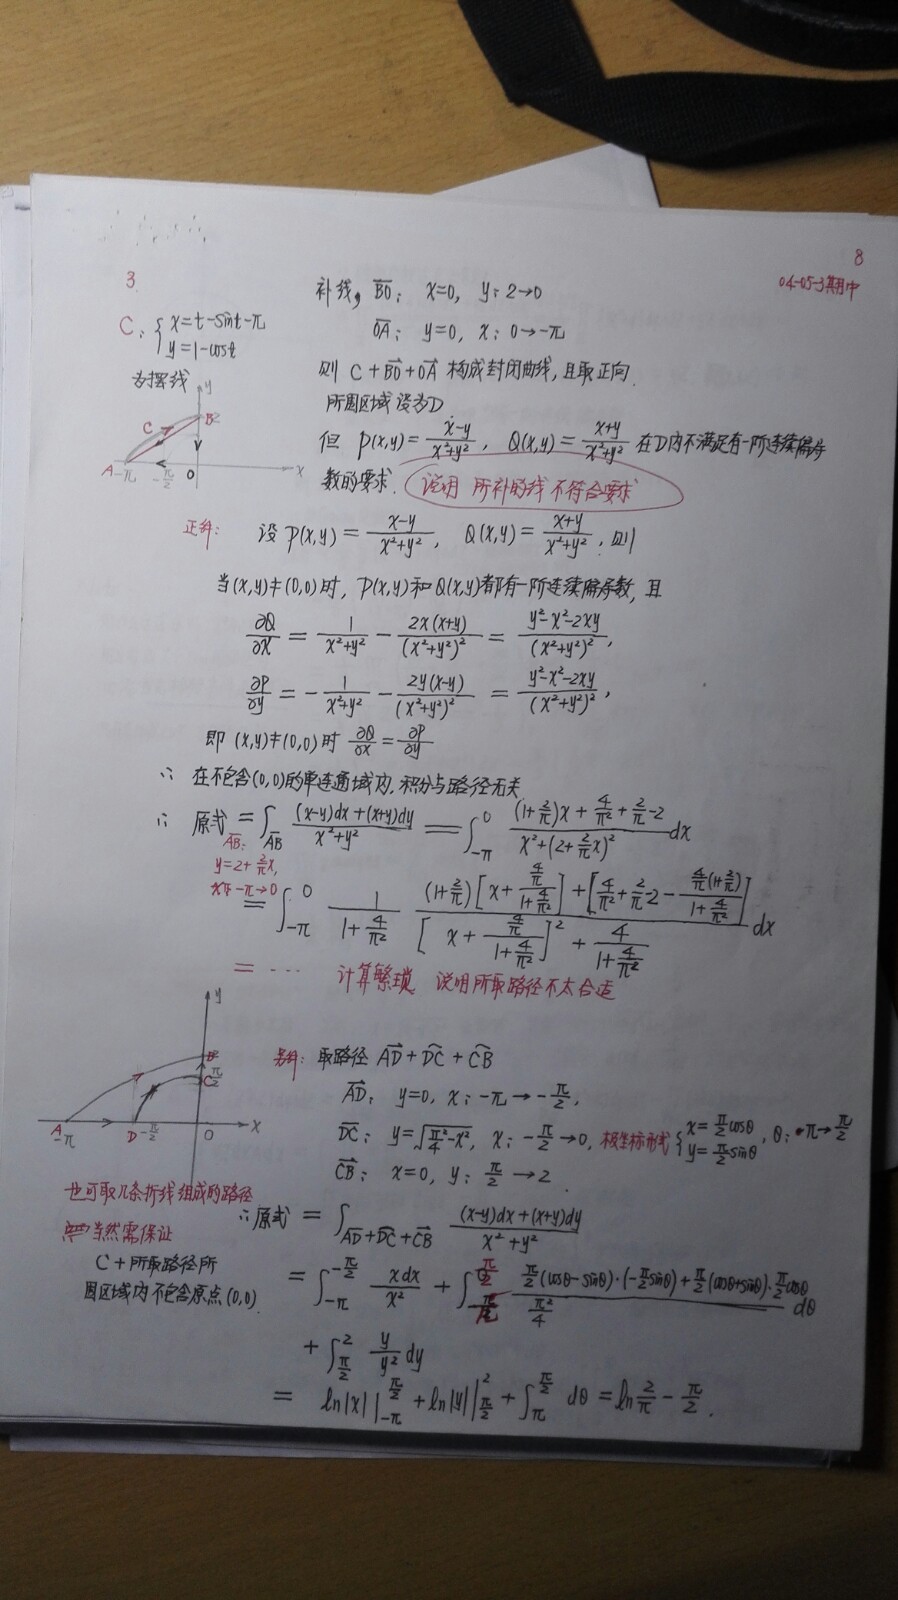 8
04-05-3期中
3.
C: { x=t-sint-π
y=1-cost
为摆线
y
B
C
A
-π
-π/2
O
x
补线, BO: x=0, y: 2→0
OA: y=0, x: 0→-π
则 C+BO+OA 构成封闭曲线,且取正向.
所围区域设为D.
但 P(x,y)=(x-y)/(x²+y²), Q(x,y)=(x+y)/(x²+y²) 在D内不满足有一阶连续偏导
数的要求. 说明 所补的线不符合要求
正解: 设 P(x,y)=(x-y)/(x²+y²), Q(x,y)=(x+y)/(x²+y²), 则
当(x,y)≠(0,0)时, P(x,y)和Q(x,y)都有一阶连续偏导数, 且
∂Q/∂x = 1/(x²+y²) - 2x(x+y)/(x²+y²)² = (y²-x²-2xy)/(x²+y²)²,
∂P/∂y = -1/(x²+y²) - 2y(x-y)/(x²+y²)² = (y²-x²-2xy)/(x²+y²)²,
即 (x,y)≠(0,0)时 ∂Q/∂x=∂P/∂y
∴ 在不包含(0,0)的单连通域内,积分与路径无关.
∴ 原式 = ∫_AB ((x-y)dx+(x+y)dy)/(x²+y²) = ∫_{-π}^{0} ((1+2/π)x+4/π²+2/π-2)/(x²+(2+2/π x)²) dx
AB:
y=2+2/π x,
x从-π→0
= ∫_{-π}^{0} 1/(1+4/π²) · ((1+2/π)[x+(4/π)/(1+4/π²)]+[4/π²+2/π-2-(4/π(1+2/π))/(1+4/π²)])/([x+(4/π)/(1+4/π²)]²+4/(1+4/π²)) dx
= ··· 计算繁琐, 说明所取路径不太合适
y
B
C π/2
A
-π
D -π/2
O
x
另解: 取路径 AD+DC+CB
AD: y=0, x: -π→-π/2,
DC: y=√(π²/4-x²), x: -π/2→0, 极坐标形式 { x=π/2cosθ
y=π/2sinθ , θ: π→π/2
CB: x=0, y: π/2→2.
也可取几条折线组成的路径
当然需保证
C+所取路径所
围区域内不包含原点(0,0).
∴原式 = ∫_{AD+DC+CB} ((x-y)dx+(x+y)dy)/(x²+y²)
= ∫_{-π}^{-π/2} xdx/x² + ∫_{π}^{π/2} (π/2(cosθ-sinθ)·(-π/2sinθ)+π/2(cosθ+sinθ)·π/2cosθ)/(π²/4) dθ
+ ∫_{π/2}^{2} y/y² dy
= ln|x| |_{-π}^{π/2} + ln|y| |_{π/2}^{2} + ∫_{π}^{π/2} dθ = ln 2/π - π/2.